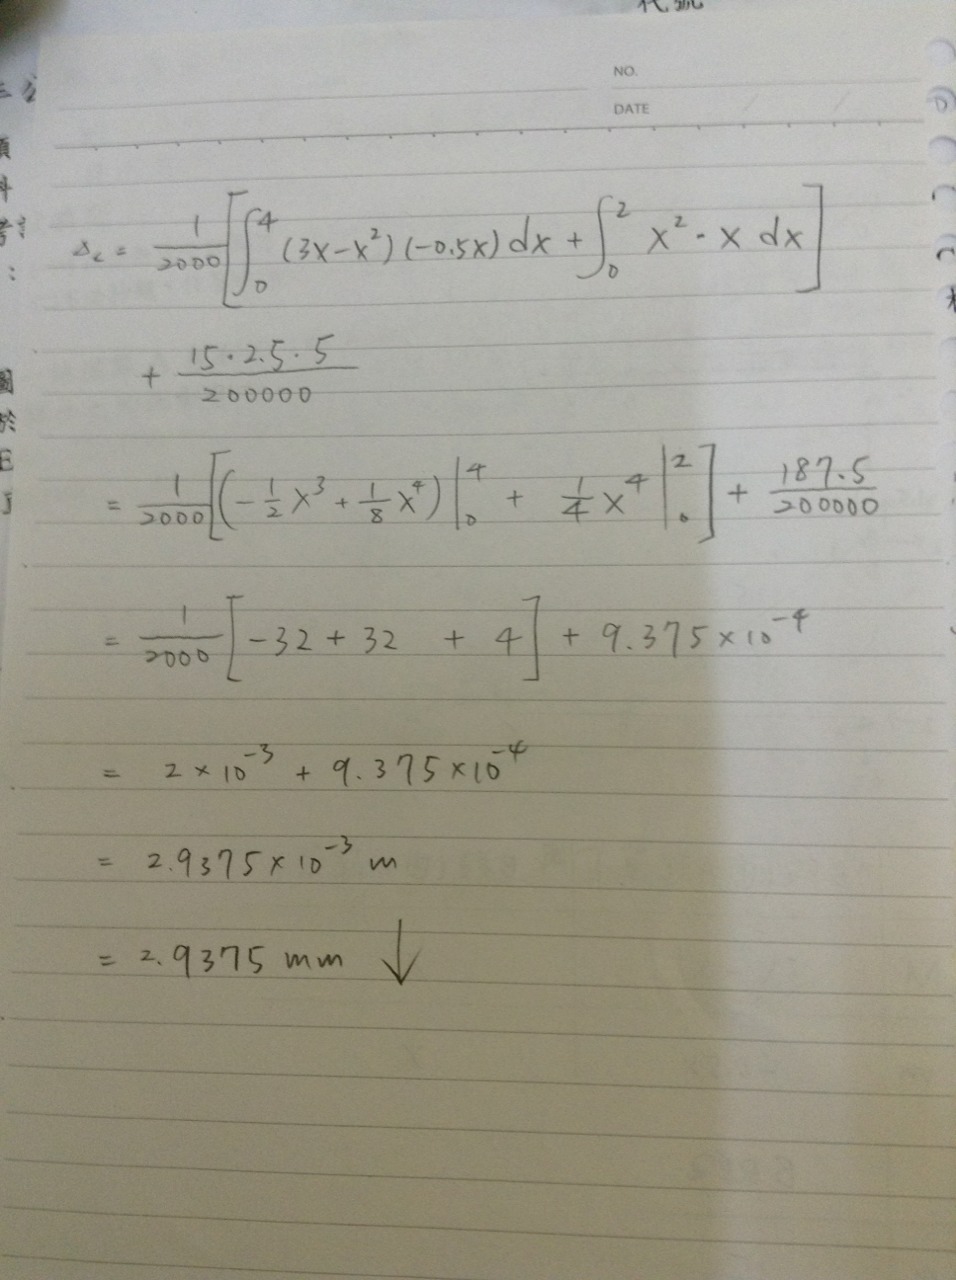 代號
NO.
DATE
Δc = 1/2000 [ ∫₀⁴ (3x-x²)(-0.5x) dx + ∫₀² x² · x dx ]
+ 15·2.5·5/200000
= 1/2000 [ (-1/2 x³ + 1/8 x⁴) |₀⁴ + 1/4 x⁴ |₀² ] + 187.5/200000
= 1/2000 [ -32 + 32 + 4 ] + 9.375×10⁻⁴
= 2×10⁻³ + 9.375×10⁻⁴
= 2.9375×10⁻³ m
= 2.9375 mm ↓